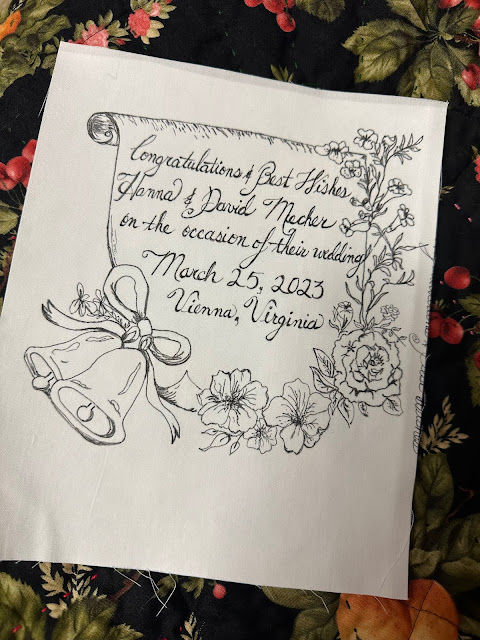 Congratulations & Best Wishes
Hanna & David Macher
on the occasion of their wedding
March 25, 2023
Vienna, Virginia